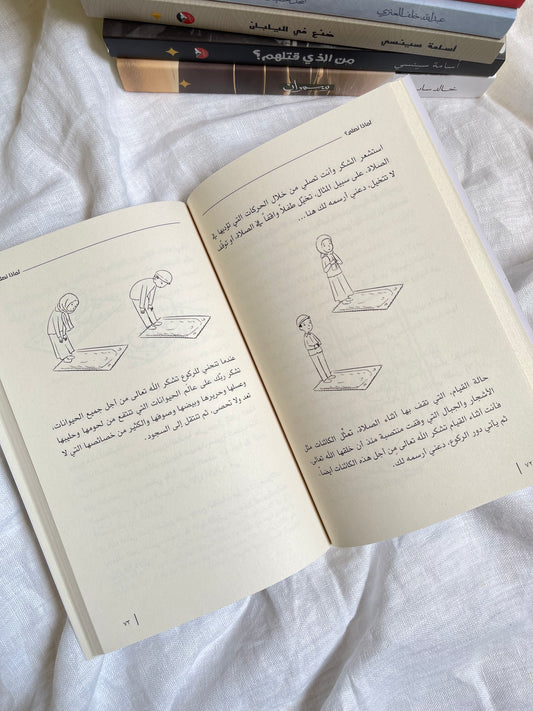 صنع في اليابان
أسامة سيبسي
من الذي قتلهم؟
أسامة سيبسي
لماذا نصلي؟
استشعر الشكر وأنت تصلي من خلال الحركات التي تؤديها في
الصلاة. على سبيل المثال، تخيّل طفلاً واقفاً في الصلاة، أو توقّف
لا تتخيل، دعني أرسمه لك هنا...
حالة القيام، التي تقف بها أثناء الصلاة، تمثّل الكائنات مثل
الأشجار والجبال التي وقفت منتصبة منذ أن خلقها الله تعالى.
فأنت أثناء القيام تشكر الله تعالى من أجل هذه الكائنات أيضاً.
ثم يأتي دور الركوع، دعني أرسمه لك.
٧٢
لماذا
عندما تنحني للركوع تشكر الله تعالى من أجل جميع الحيوانات،
تشكر ربّك على عالم الحيوانات التي تنتفع من لحومها وحليبها
وعسلها وحريرها وبيضها وصوفها والكثير من خصائصها التي لا
تعد ولا تحصى. ثم تنتقل إلى السجود.
٧٣